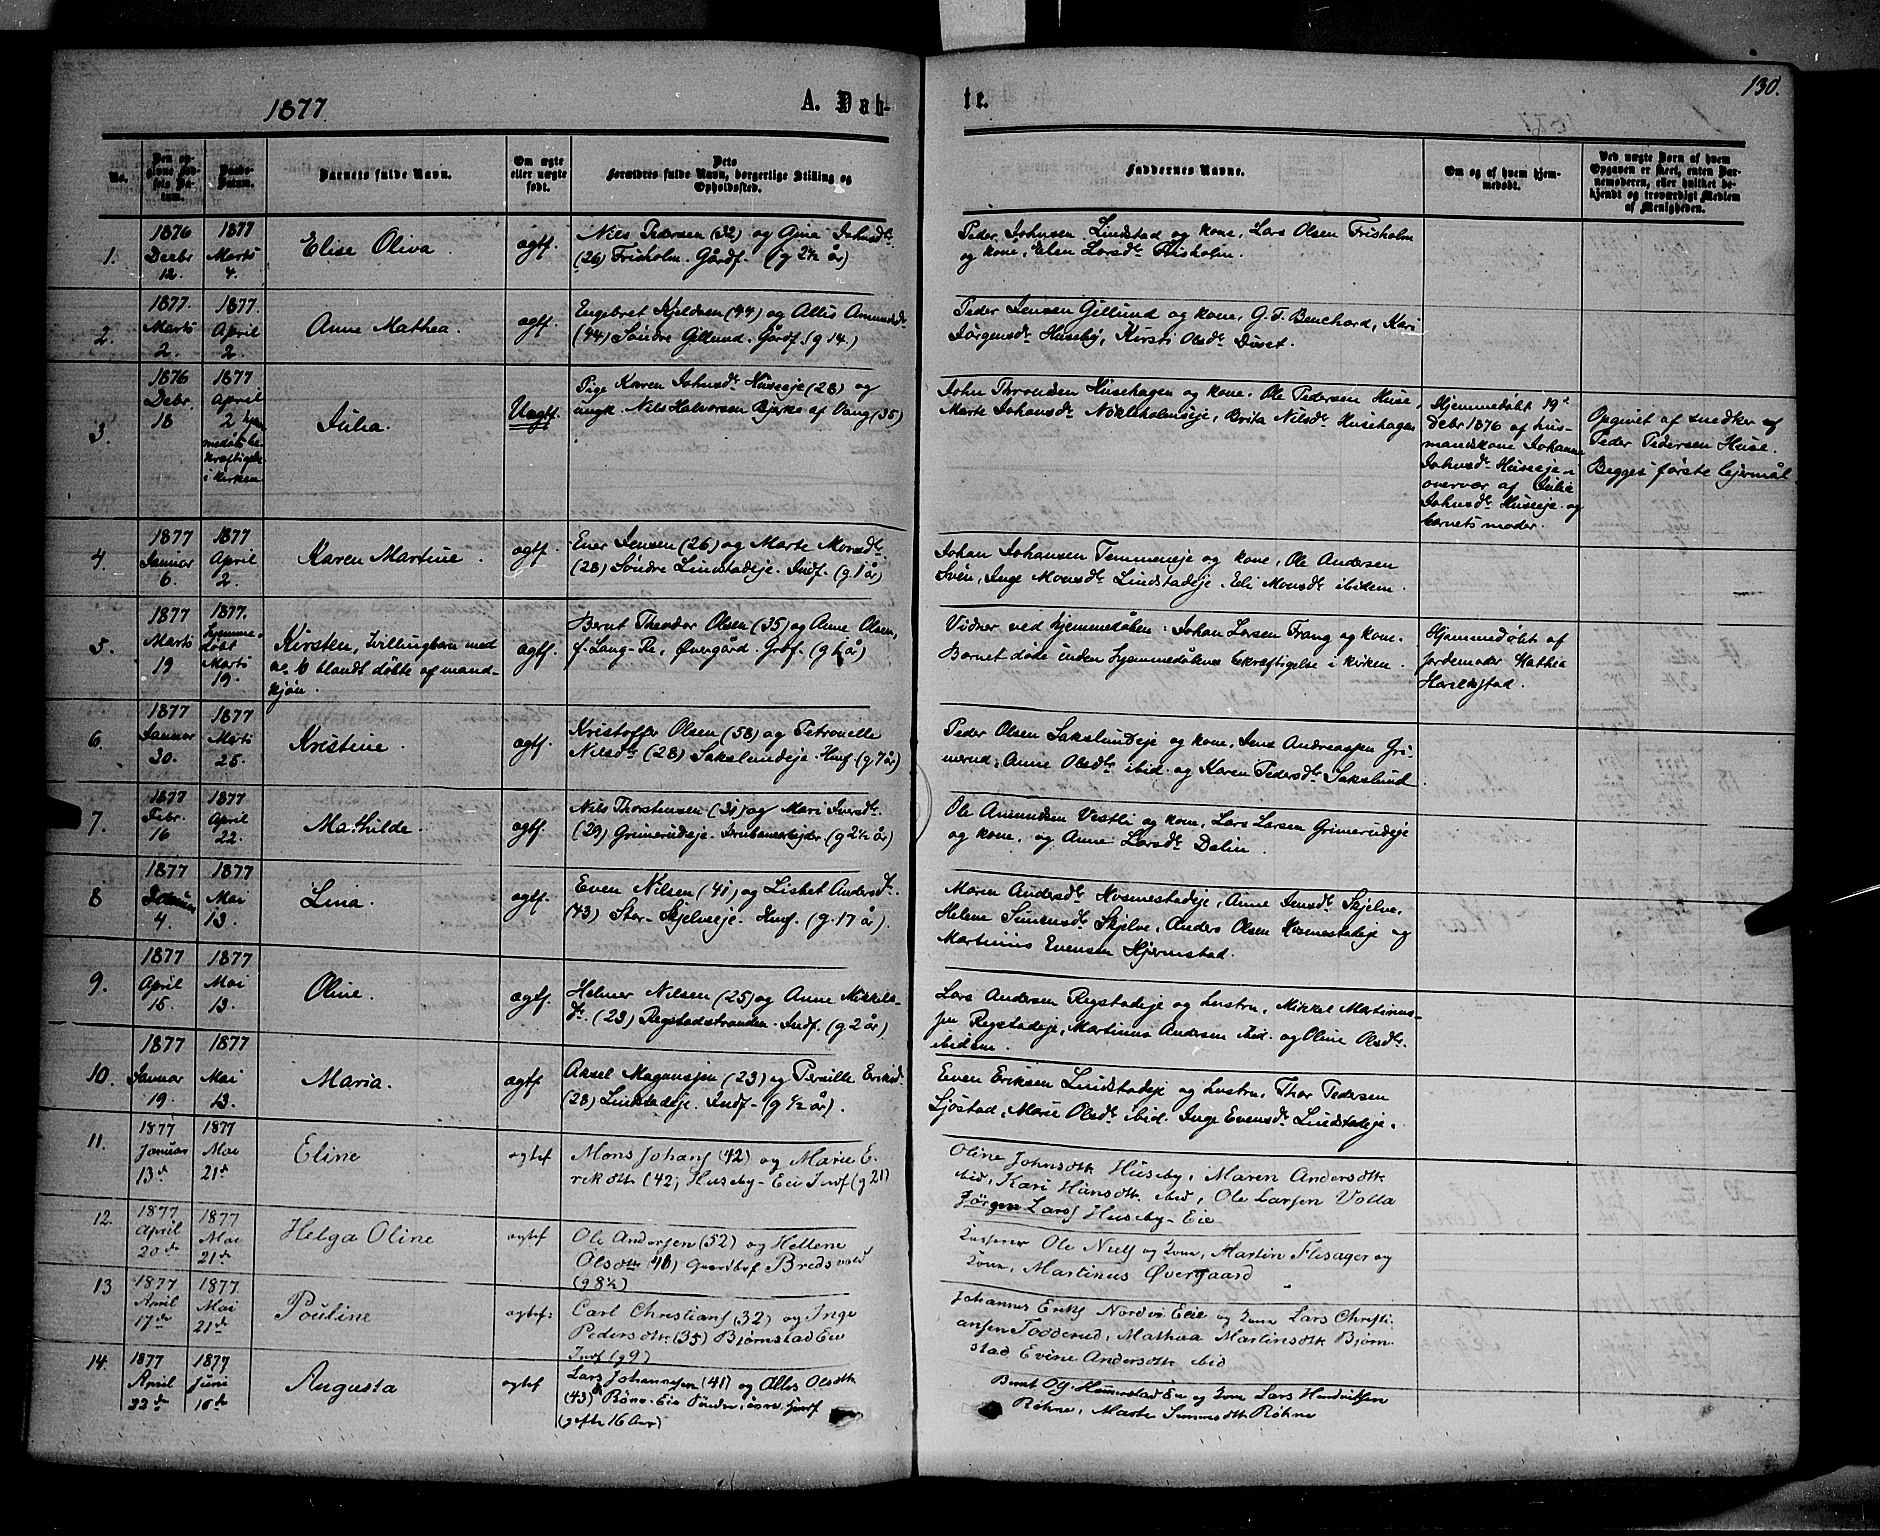 130.
1877.
A. Døb-
te.
No.
Den op-
givne Fød-
sels Da-
tum.
Daabs-
Datum.
Barnets fulde Navn.
Om ægte
eller uægte
født.
Dets
Forældres fulde Navn, borgerlige Stilling og
Opholdssted.
Faddernes Navne.
Om og af hvem hjem-
medøbt.
Ved uægte Børn af hvem
Opgaven er skeet, enten Bar-
nemoderen, eller hvilket be-
kjendt og troværdigt Medlem
af Menigheden.
1.
1876
Decbr
12.
1877
Marts
4.
Elise Oliva
ægtf.
Nils Pedersen (32) og Gina Johnsdtr
(26) Frisholm. Gårdf. (g 2½ år)
Peder Johnsen Lindstad og kone, Lars Olsen Frisholm
og kone, Elen Larsdtr Frisholm.
2.
1877.
Marts
2.
1877.
April
2.
Anne Mathea.
ægtf.
Engebret Kjeldsen (44) og Allis Amundsdtr
(44) Søndre Gillund. Gårdf. (g 14.)
Peder Jensen Gillund og kone, G. F. Benchard, Kari
Jörgensdtr Huseby, Kirsti Olsdtr Duset.
3.
1876
Debr.
18
1877
April
2 hjem
medøbt be-
kræftigelse
i kirken
Julia.
Uægtf.
Pige Karen Johnsdtr Huseeje (28) og
ungk. Nils Halvorsen Bjerke af Vang (35)
John Throndsen Husehagen og kone, Ole Pedersen Huse,
Marte Johansdtr Nökleholmseje, Brita Nilsdtr Husehagen
Hjemmedøbt 19de
Debr 1876 af hus-
mandskone Johanne
Johnsdtr Huseeje i
overvær af Julia
Johnsdtr Huseeje og
barnets moder.
Opgivet af snedker
Peder Pedersen Huse.
Begges første lejermål.
4.
1877
Januar
6.
1877
April
2.
Karen Martine
ægtf.
Ener Jensen (26) og Marte Monsdtr
(28) Søndre Lindstadeje. Indf. (g. 1 år)
Johan Johansen Temmeneje og kone, Ole Andersen
Svén, Inge Monsdtr Lindstadeje. Eli Monsdtr ibidem.
5.
1877
Marts
19
1877.
hjemme-
døbt
Marts
19.
Kirsten, tvillingbarn med
No 6 blandt døbte af mand-
kjøn.
ægtf.
Bernt Theodor Olsen (35) og Anne Olsen,
f. Lang-Re, Øvergård. Grdf. (g 1 år)
Vidner ved hjemmedåben: Johan Larsen Frang og kone.
Barnet døde inden hjemmedåbens bekræftigelse i kirken.
Hjemmedøbt af
jordemoder Mathea
Harelstad.
6.
1877
Januar
30.
1877
Marts
25.
Kristine.
ægtf.
Kristoffer Olsen (58) og Petronelle
Nilsdtr (28) Sakslundeje. Husf (g. 7 år)
Peder Olsen Sakslundeje og kone, Jens Andreassen Gri-
merud, Anne Olsdtr ibid. og Karen Pedersdtr Sakslund.
7.
1877
Febr.
16
1877
April
22.
Mathilde.
ægtf.
Nils Thorstensen (31) og Mari Iversdtr
(29) Grimerudeje. Jernbanearbejder (g 2½ år)
Ole Amundsen Vestli og kone, Lars Larsen Grimerudeje
og kone, og Anne Larsdtr Delin.
8
1877
Januar
4.
1877
Mai
13.
Lina.
ægtf.
Even Nilsen (41) og Lisbet Andersdtr.
(43) Stor-Skjelveje. Husf. (g. 17 år).
Maren Andersdtr Hosmestadeje, Anne Jensdtr Skjelve,
Helene Simensdtr Skjelve, Anders Olsen Hosmestadeje og
Martinius Evensen Hjermstad.
9.
1877
April
15.
1877
Mai
13.
Oline.
ægtf.
Helmer Nilsen (25) og Anne Mikkels-
dtr. (23) Regstadstranden. Indf. (g 2 år)
Lars Andersen Regstadeje og hustru, Mikkel Martinus-
sen Regstadeje, Martinus Andersen ibid. og Oline Olsdtr.
ibidem.
10.
1877
Januar
19.
1877
Mai
13.
Maria.
ægtf
Aksel Magnussen (23) og Pernille Eriksd.
(28) Lindstadeje. Indf. (g ½ år).
Even Eriksen Lindstadeje og hustru, Thor Pedersen
Sjöstad, Marie Olsdtr ibid. Inge Evensdtr Lindstadeje.
11.
1877
Januar
13de
1877
Mai
21de
Eline
ægtef
Mons Johans (42) og Marie E-
riksdttr (42) Huseby-Eie Indf (g 21)
Oline Johnsdttr Huseby, Maren Andersdttr
ibid, Kari Hansdttr ibid, Ole Larsen Volla
Jörgen Lars Huseby-Eie
12.
1877
April
20de
1877
Mai
21de
Helga Oline
ægtef
Ole Andersen (52) og Hellene
Olsdttr (40) Gaardbr Bredsvold
(g 8½)
Ole Nils og Kone, Martin Flisager og
Kone, Martinus Øvergaard
13
1877
April
17de
1877
Mai
21de
Pouline
ægtef:
Carl Christians (32) og Inge
Pedersdttr (35) Bjørnstad Eie
Indf (g 9)
Johannes Eriks Nordvi Eie og Kone Lars Christi-
ansen Todderud, Mathea Martinsdttr Bjørn-
stad Evine Andersdttr ibid
14.
1877
April
22de
1877
Juni
10de
Augusta
ægtef
Lars Johannesen (41) og Allis Olsdttr
(43) Røne-Eie
(gifte 16 Aar)
Bernt Ols. Hemmstad Eie og Kone Lars Hendriksen
Røhne, Marte Simensdttr Røhne